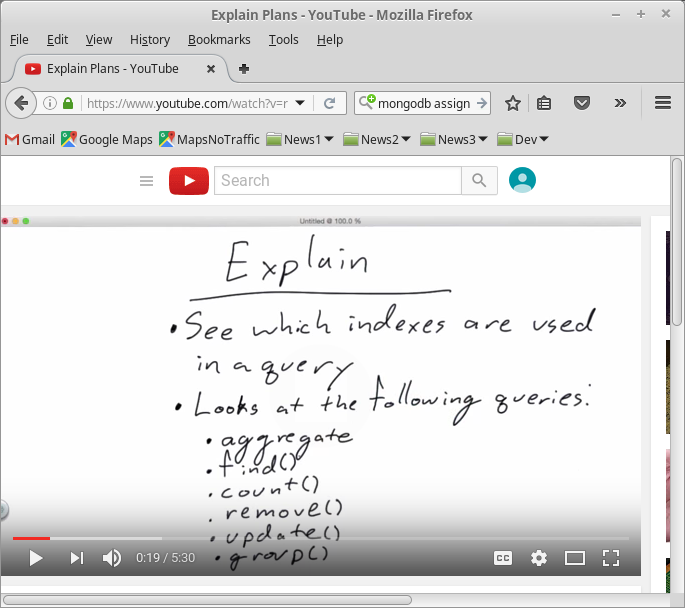 Explain Plans - YouTube - Mozilla Firefox
File Edit View History Bookmarks Tools Help
Explain Plans - YouTube
https://www.youtube.com/watch?v=r mongodb assign
Gmail Google Maps MapsNoTraffic News1 News2 News3 Dev
Search
Untitled @ 100.0 %
Explain
• See which indexes are used
in a query
• Looks at the following queries:
• aggregate
• find()
• count()
• remove()
• update()
• group()
0:19 / 5:30 CC